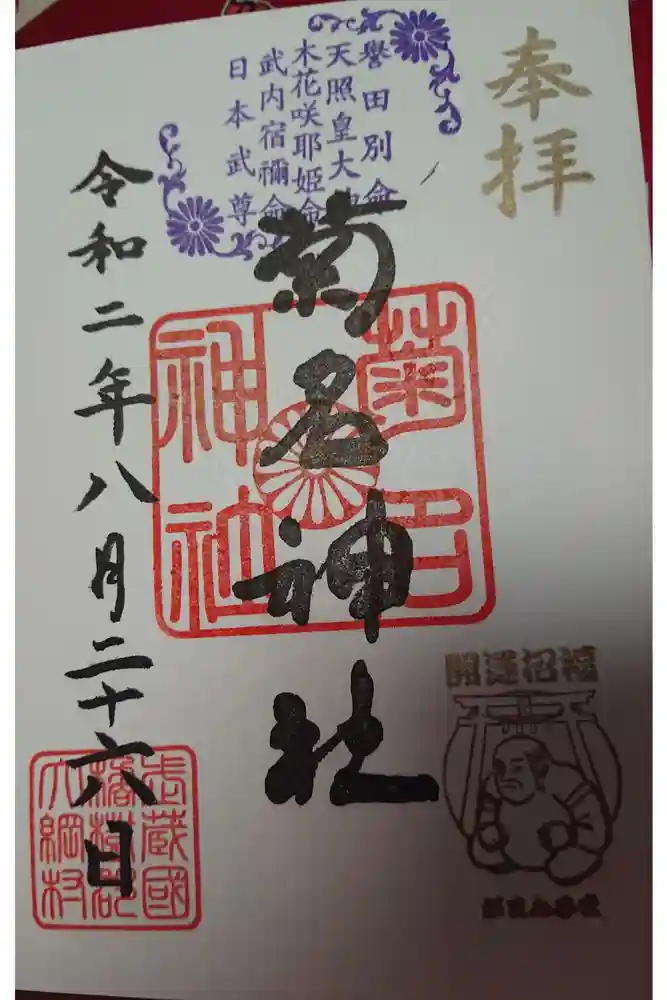 奉拝
譽田別命
天照皇大神
木花咲耶姫命
武内宿禰命
日本武尊
菊名神社
菊名
神社
令和二年八月二十六日
開運招福
武蔵國
橘樹郡
大綱村